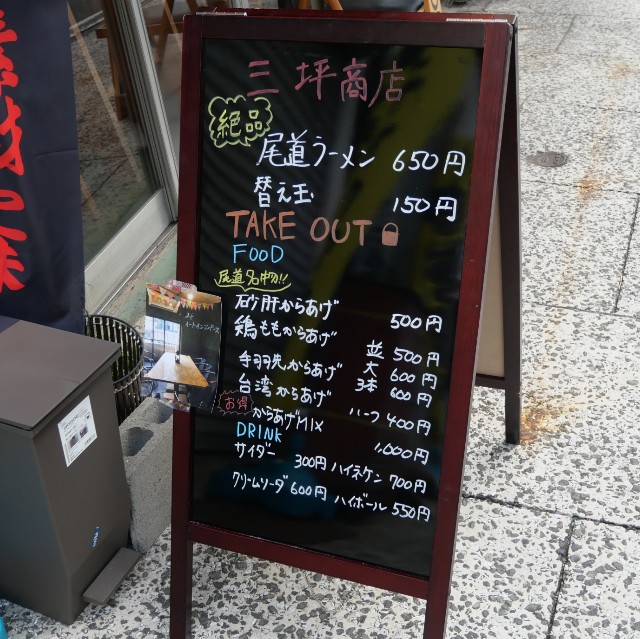 三坪商店
絶品
尾道ラーメン 650円
替え玉 150円
TAKE OUT
FOOD
尾道名物!!
砂肝からあげ 500円
鶏ももからあげ 並 500円
大 600円
手羽先からあげ 3本 600円
台湾からあげ ハーフ 400円
お得 からあげMIX 1,000円
DRINK
サイダー 300円 ハイネケン 700円
クリームソーダ 600円 ハイボール 550円